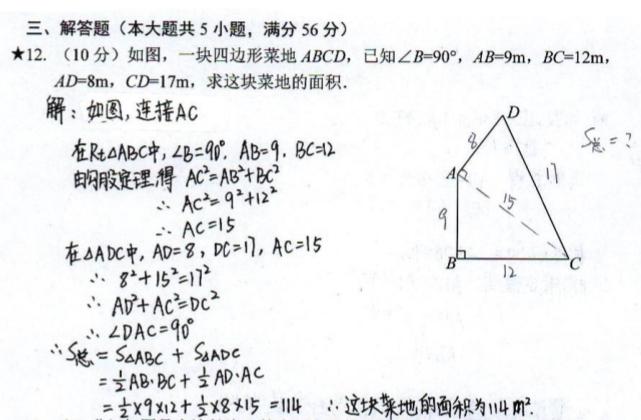 三、解答题（本大题共 5 小题，满分 56 分）
★12. （10 分）如图，一块四边形菜地 ABCD，已知∠B=90°，AB=9m，BC=12m，
AD=8m，CD=17m，求这块菜地的面积．
解：如图，连接AC
在Rt△ABC中，∠B=90°，AB=9，BC=12
由勾股定理得 AC²=AB²+BC²
∴ AC²=9²+12²
∴ AC=15
在△ADC中，AD=8，DC=17，AC=15
∵ 8²+15²=17²
∴ AD²+AC²=DC²
∴ ∠DAC=90°
∴S总 = S△ABC + S△ADC
=½AB·BC+½AD·AC
=½×9×12+½×8×15=114 ∴这块菜地的面积为114m².
D
8
S总=?
A
17
15
9
B
12
C